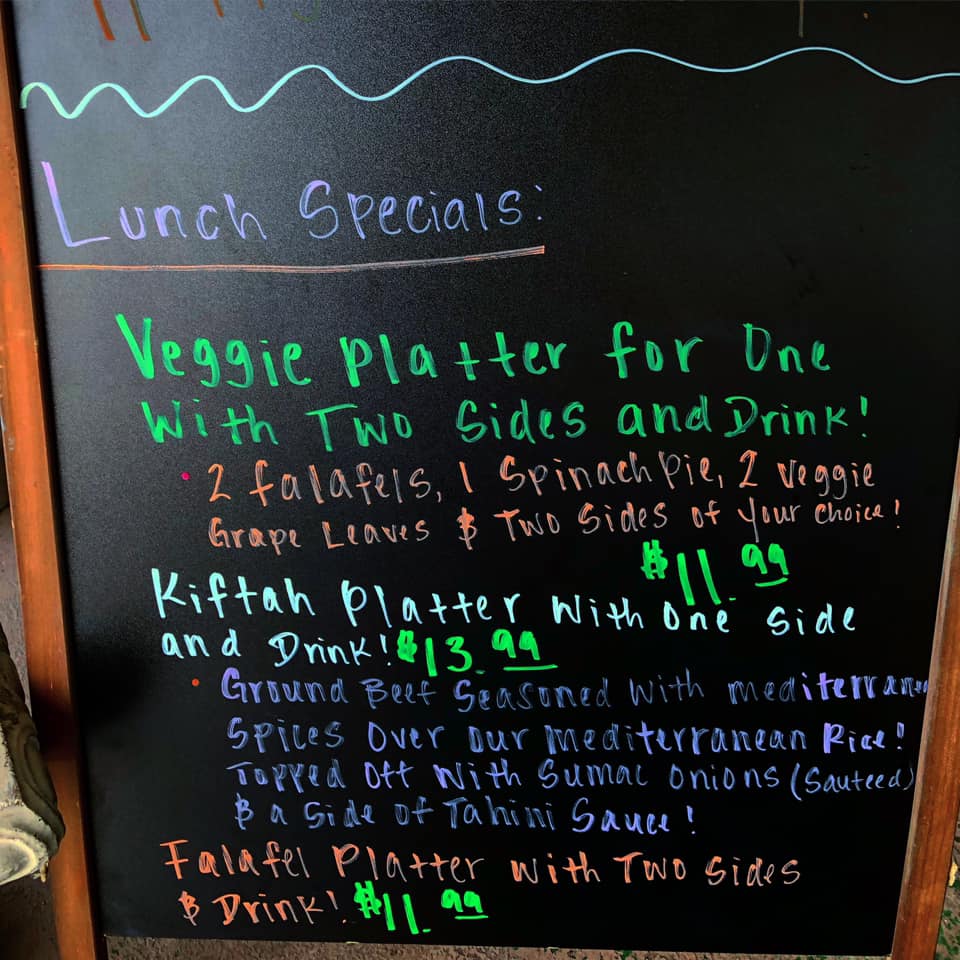 Lunch Specials:
Veggie Platter for One
With Two Sides and Drink!
• 2 falafels, 1 Spinach Pie, 2 Veggie
Grape Leaves & Two Sides of Your Choice!
$11.99
Kiftah Platter With One Side
and Drink! $13.99
• Ground Beef Seasoned With mediterranea
Spices Over our mediterranean Rice!
Topped Off With Sumac Onions (Sauteed)
& a Side of Tahini Sauce!
Falafel Platter With Two Sides
& Drink! $11.99